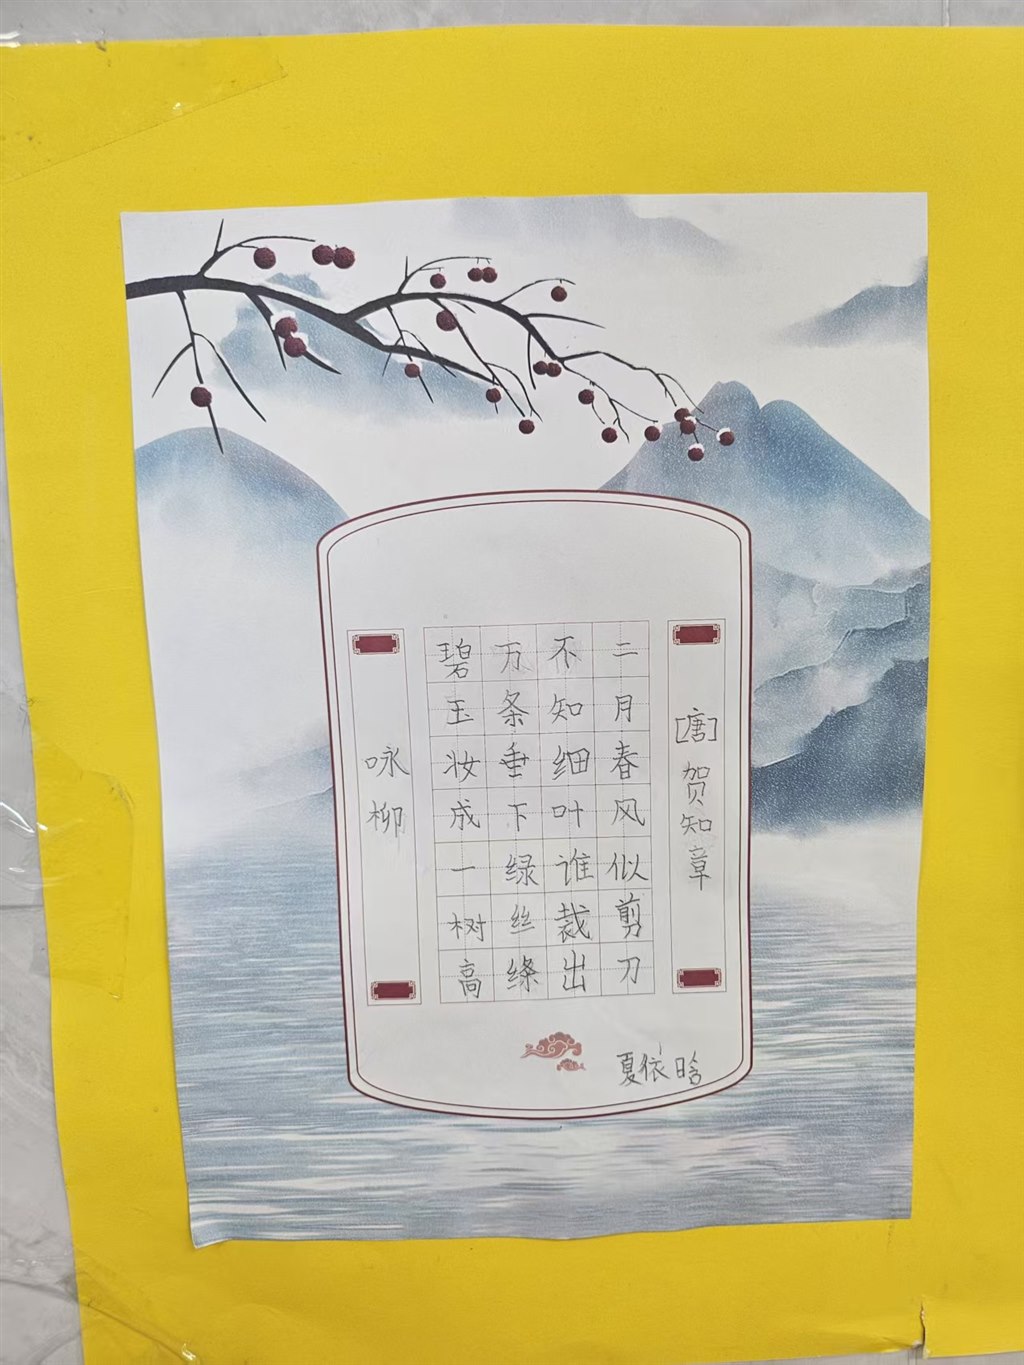 咏柳
碧玉妆成一树高
万条垂下绿丝绦
不知细叶谁裁出
二月春风似剪刀
[唐]贺知章
夏依晗